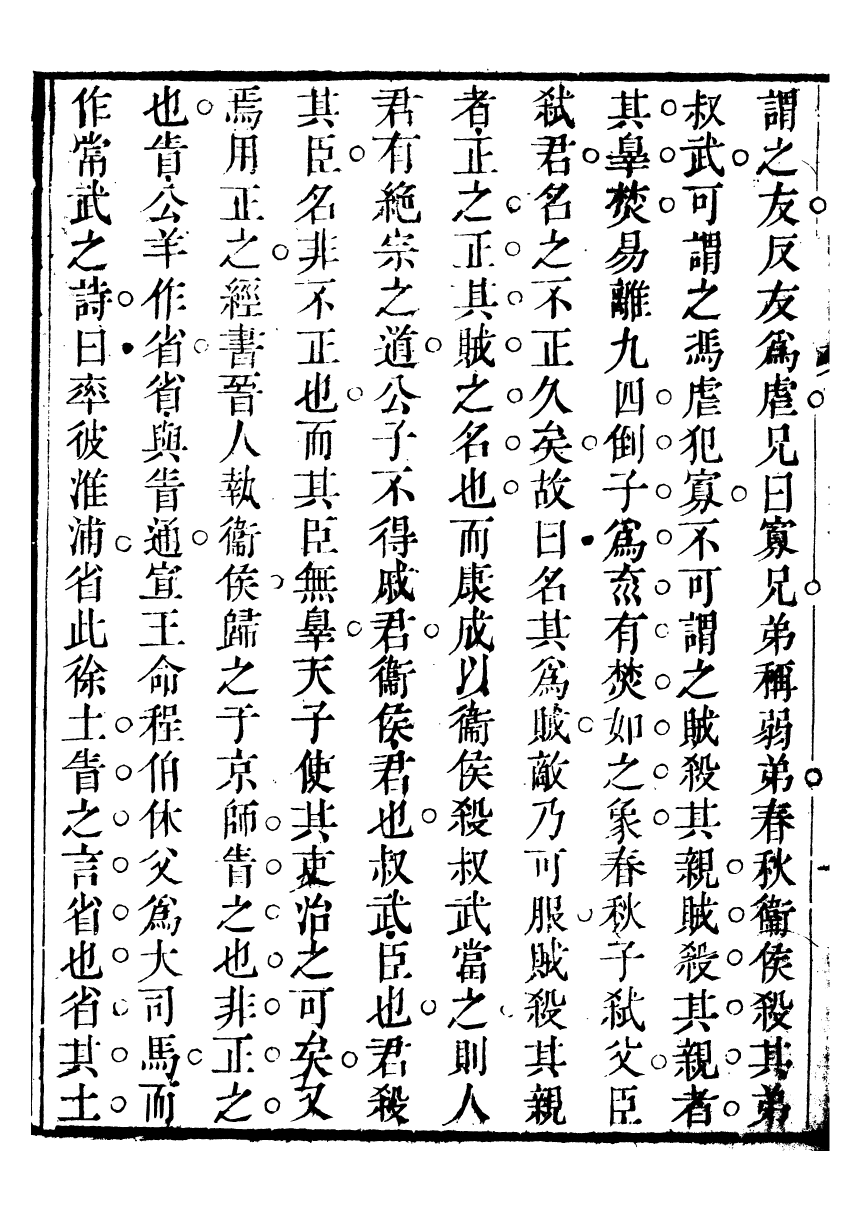 謂之友反友爲虐兄曰寡兄弟稱弱弟春秋衞侯殺其弟
叔武可謂之馮虐犯寡不可謂之賊殺其親賊殺其親者
其辠焚易離九四倒子爲𠫓有焚如之象春秋子弑父臣
弑君名之不正久矣故曰名其爲賊敵乃可服賊殺其親
者正之正其賊之名也而康成以衞侯殺叔武當之則人
君有絶宗之道公子不得戚君衞侯君也叔武臣也君殺
其臣名非不正也而其臣無辠天子使其吏治之可矣又
焉用正之經書晉人執衞侯歸之于京師眚之也非正之
也眚公羊作省省與眚通宣王命程伯休父爲大司馬而
作常武之詩曰率彼淮浦省此徐土眚之言省也省其土